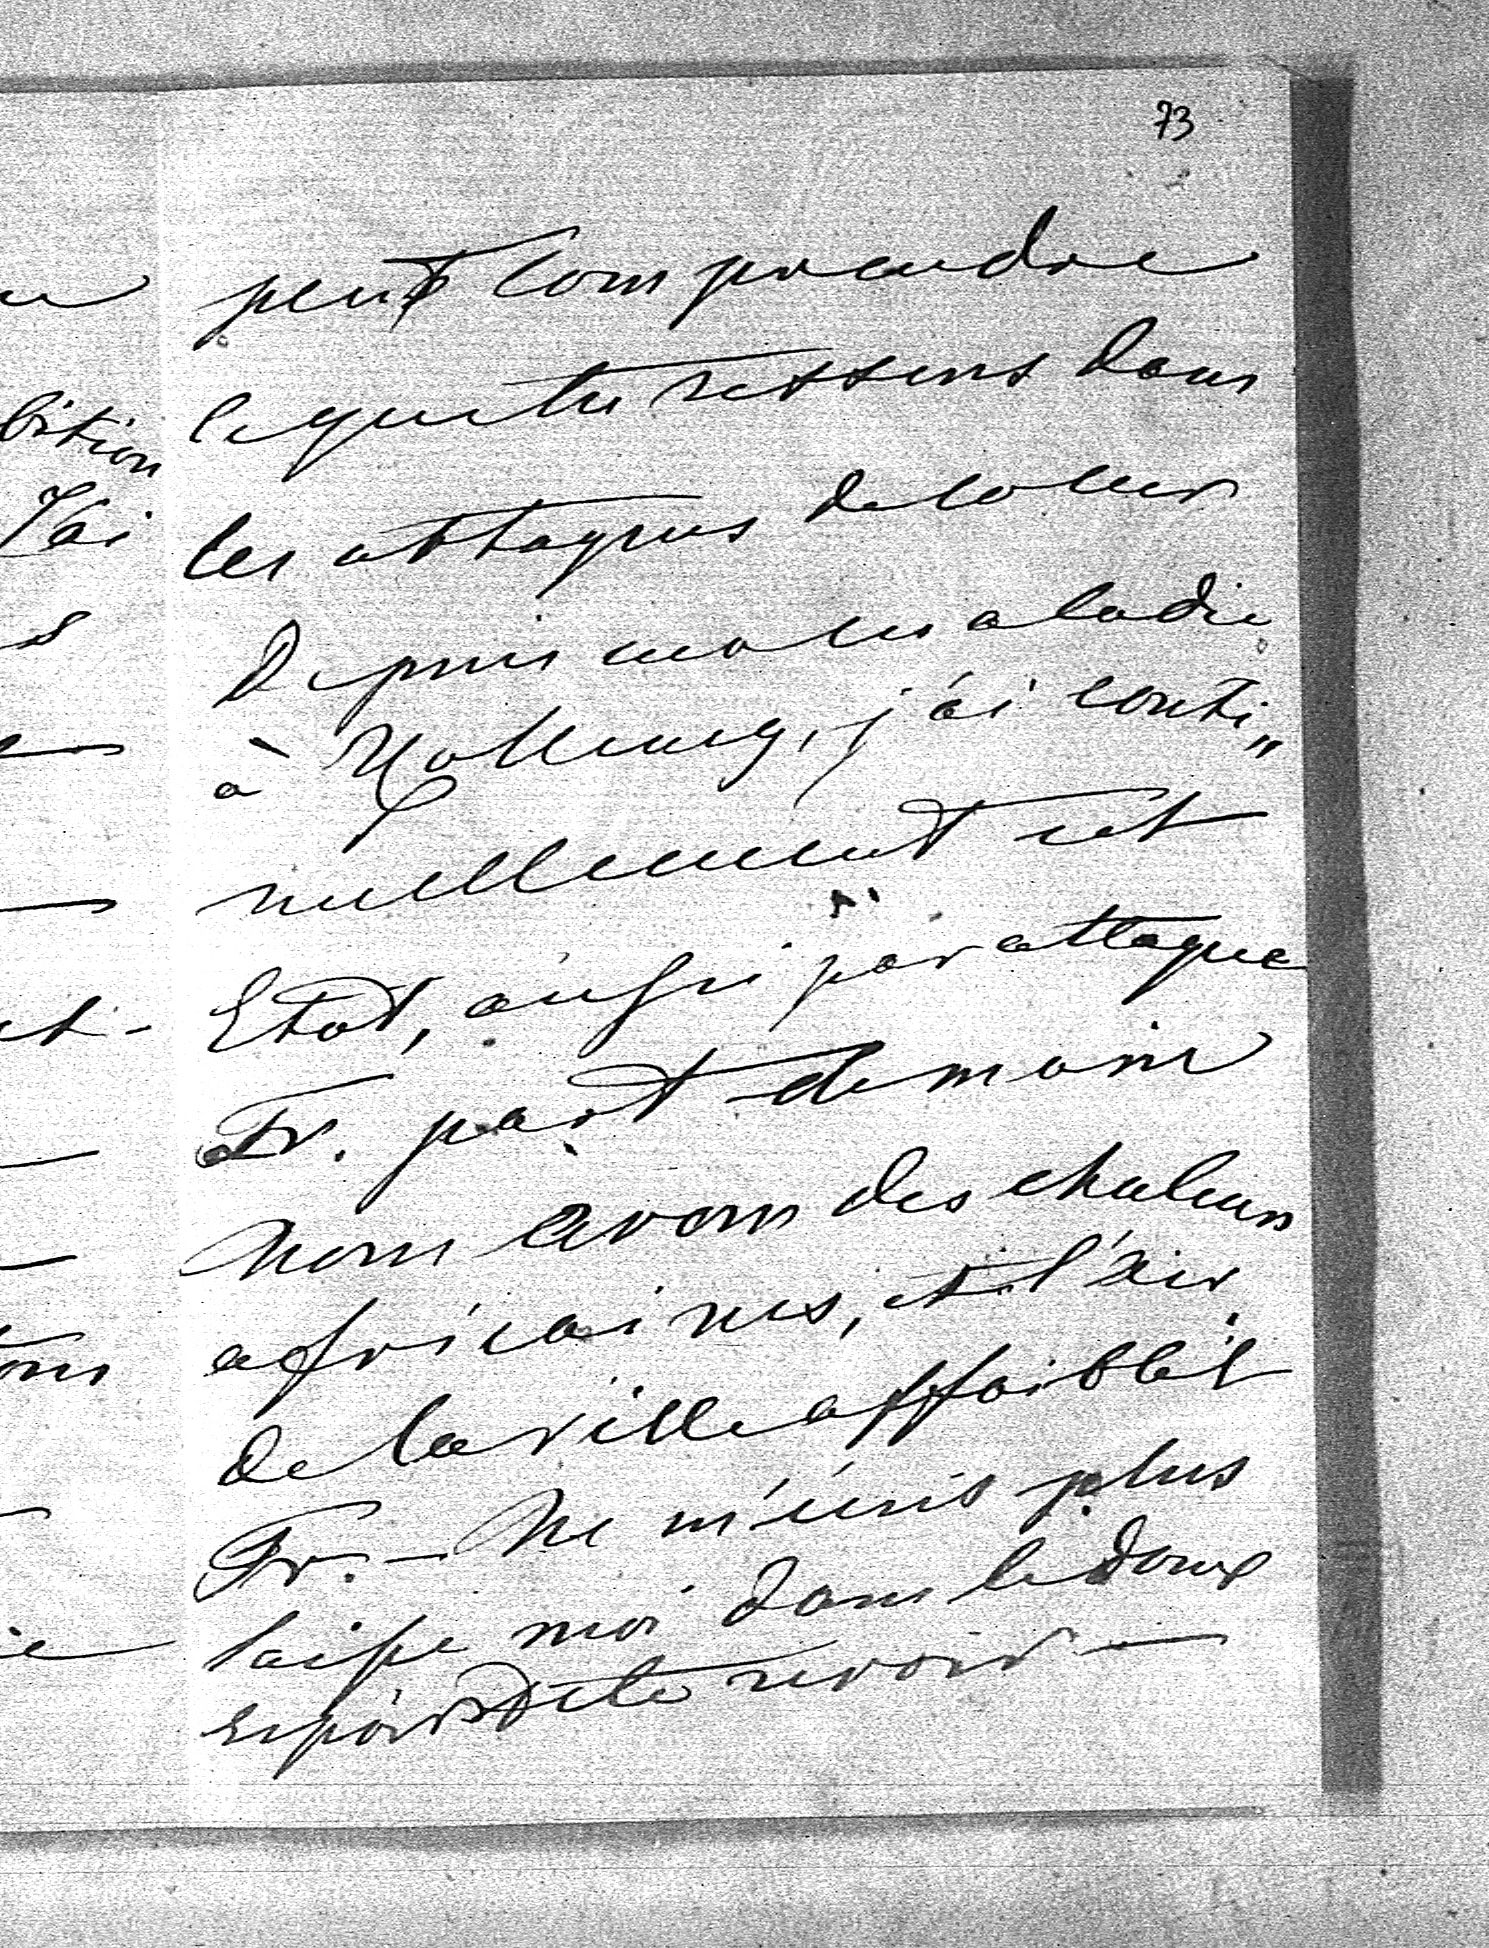 73
peut comprendre
ce que tu ressens dans
les attaques de coeur
Depuis ma maladie
à j'ai conti„
nuellement cet
Etat, aussi par attaque
Fr. part demain
Nous avons des chaleurs
africaines, et l'air
de la ville affaiblit
Fr. — Ne m'écris plus
laisse moi dans le doux
espoir de te revoir —
bition
J'ai